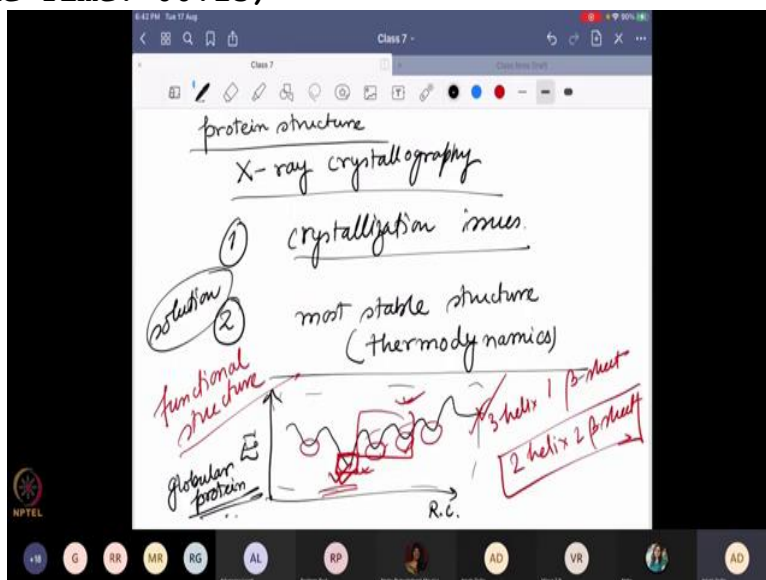 6:42 PM Tue 17 Aug
90%
Class 7
Class 7
protein structure
X-ray crystallography
1 crystallization issues.
solution
2 most stable structure
(thermodynamics)
functional
structure
3 helix 1 β-sheet
2 helix 2 β sheet
E
globular
protein
R.C.
NPTEL
+18 G RR MR RG AL RP AD VR AD